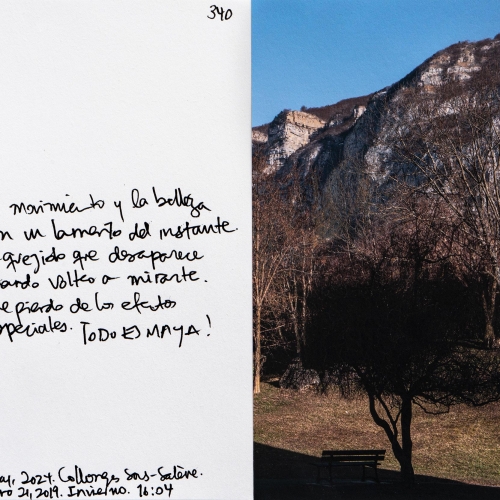 340
movimiento y la belleza
n un lamento del instante.
quejido que desaparece
ando volteo a mirarte.
e pierdo de los efectos
speciales. TODO ES MAYA!
ay, 2024. Collonges Sous-Salève.
ro 21, 2019. Invierno. 16:04